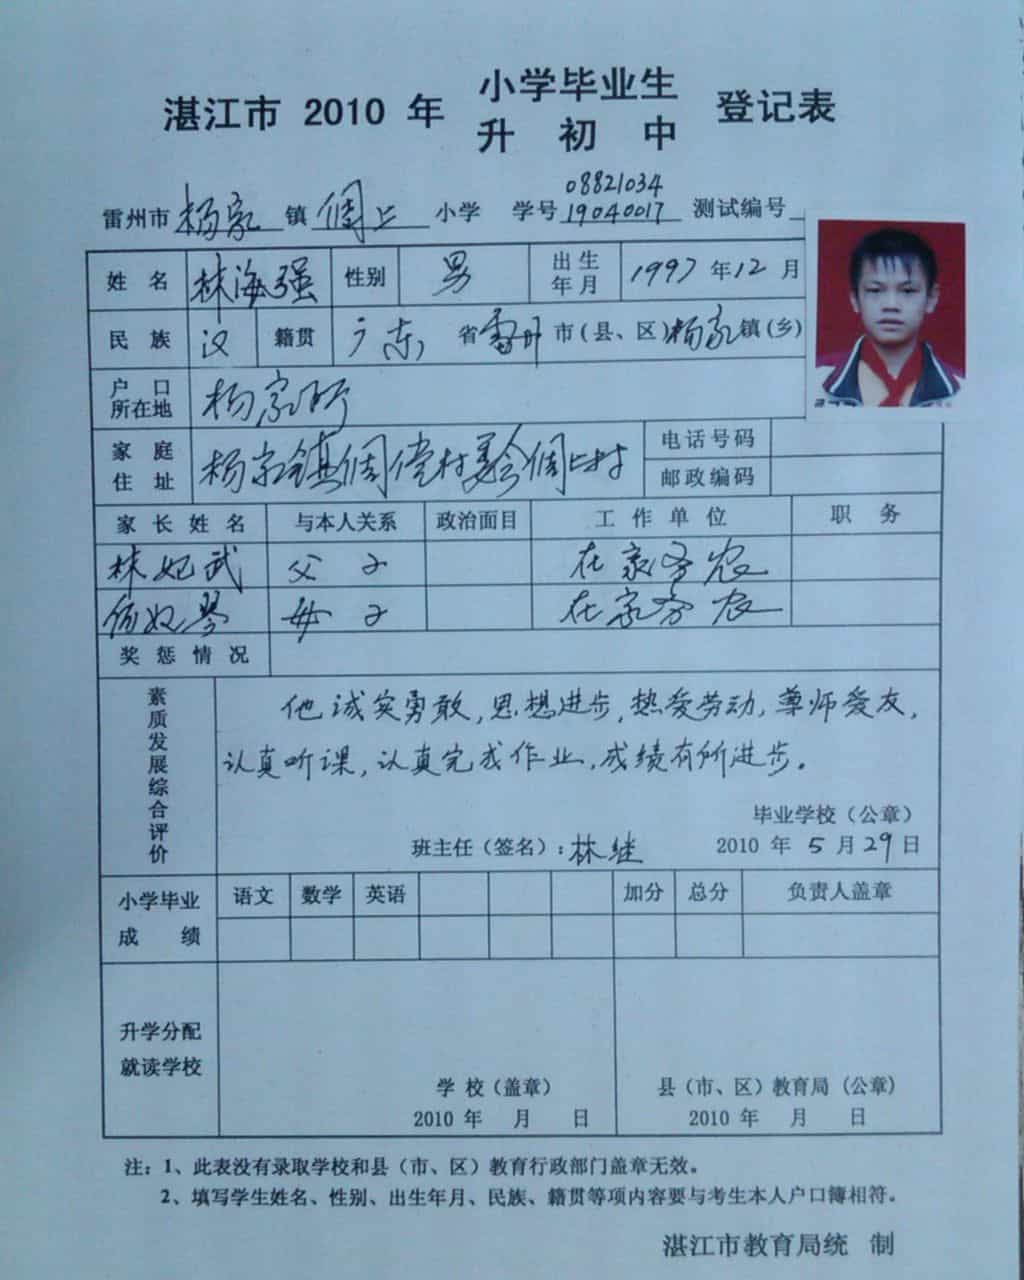 湛江市 2010 年 小学毕业生 升初中 登记表
08821034
雷州市 杨家 镇 侗上 小学 学号 19040017 测试编号
姓名 林海强 性别 男 出生年月 1997 年 12 月
民族 汉 籍贯 广东 省 雷州 市(县、区) 杨家 镇(乡)
户口所在地 杨家所
家庭住址 杨家镇 村 村 电话号码
邮政编码
家长姓名 与本人关系 政治面目 工作单位 职务
林妃武 父子 在家务农
母子 在家务农
奖惩情况
素质发展综合评价
他诚实勇敢,思想进步,热爱劳动,尊师爱友,
认真听课,认真完成作业,成绩有所进步。
毕业学校(公章)
班主任(签名):林继 2010 年 5 月 29 日
小学毕业成绩 语文 数学 英语 加分 总分 负责人盖章
升学分配就读学校
学校(盖章) 县(市、区)教育局(公章)
2010 年 月 日 2010 年 月 日
注:1、此表没有录取学校和县(市、区)教育行政部门盖章无效。
2、填写学生姓名、性别、出生年月、民族、籍贯等项内容要与考生本人户口簿相符。
湛江市教育局统 制